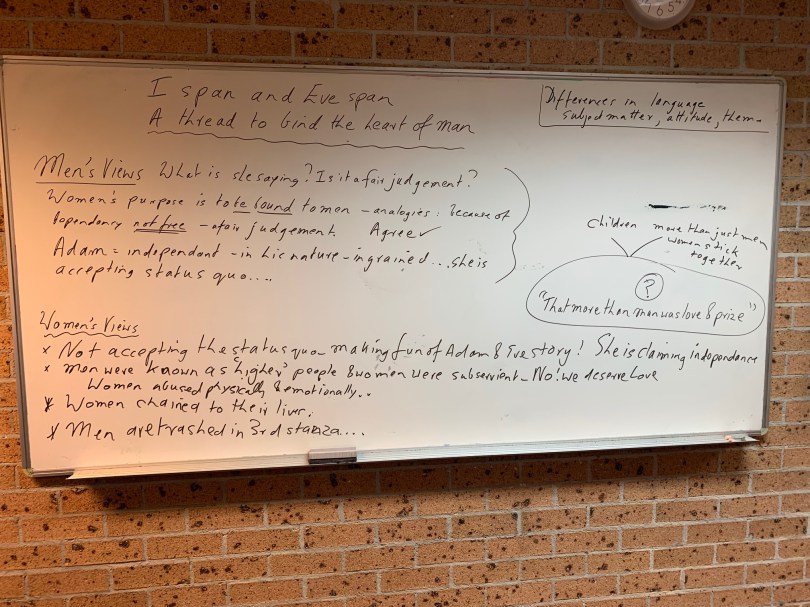 I span and Eve span
A thread to bind the heart of man
Differences in language
subject matter, attitude, them-
Men's Views What is she saying? Is it a fair judgement?
Women's purpose is to be bound to men - analogies: because of
Dependency not free - a fair judgement Agree ✓
Adam = independent - in his nature - ingrained ... she is
accepting status quo....
Children more than just men
women stick
together
?
"That more than man was love & prize"
Women's Views
x Not accepting the status quo - making fun of Adam & Eve story! She is claiming independence
x Men were known as 'higher' people & women were subservient - No! we deserve Love
Women abused physically & emotionally..
x Women chained to their lives.
x Men are trashed in 3rd stanza....